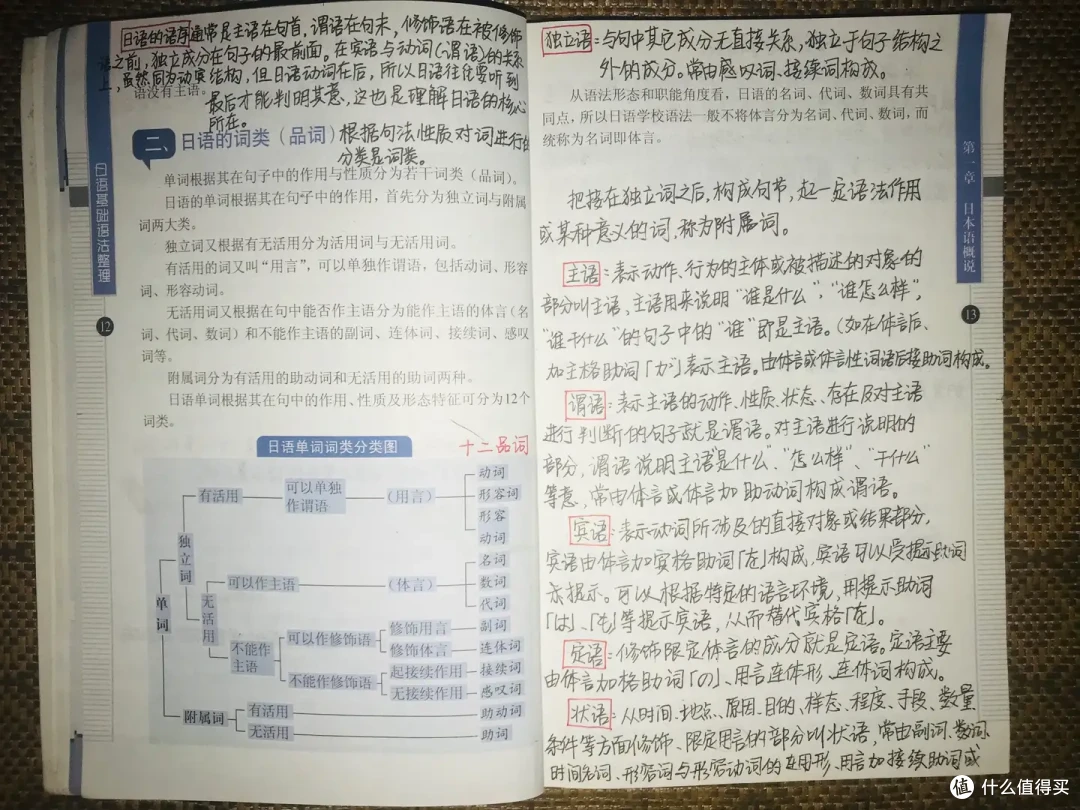 日语的语序通常是主语在句首，谓语在句末，修饰语在被修饰
语之前，独立成分在句子的最前面。在宾语与动词（谓语）的关系
上，虽然同为动宾结构，但日语动词在后，所以日语往往要听到
语没有主语。
最后才能判明其意，这也是理解日语的核心
所在。
二、日语的词类（品词）
根据句法性质对词进行的
分类是词类。
单词根据其在句子中的作用与性质分为若干词类（品词）。
日语的单词根据其在句子中的作用，首先分为独立词与附属
词两大类。
独立词又根据有无活用分为活用词与无活用词。
有活用的词又叫“用言”，可以单独作谓语，包括动词、形容
词、形容动词。
无活用词又根据在句中能否作主语分为能作主语的体言（名
词、代词、数词）和不能作主语的副词、连体词、接续词、感叹
词等。
附属词分为有活用的助动词和无活用的助词两种。
日语单词根据其在句中的作用、性质及形态特征可分为12个
词类。
十二品词
日语单词词类分类图
单词
独立词
有活用
可以单独
作谓语
（用言）
动词
形容词
形容
动词
无活用
可以作主语
（体言）
名词
数词
代词
不能作
主语
可以作修饰语
修饰用言
副词
修饰体言
连体词
不能作修饰语
起接续作用
接续词
无接续作用
感叹词
附属词
有活用
助动词
无活用
助词
日语基础语法整理
12
独立语：与句中其它成分无直接关系，独立于句子结构之
外的成分。常由感叹词、接续词构成。
从语法形态和职能角度看，日语的名词、代词、数词具有共
同点，所以日语学校语法一般不将体言分为名词、代词、数词，而
统称为名词即体言。
把接在独立词之后，构成句节，起一定语法作用
或某种意义的词，称为附属词。
主语：表示动作、行为的主体或被描述的对象的
部分叫主语，主语用来说明“谁是什么”，“谁怎么样”，
“谁干什么”的句子中的“谁”即是主语。（如在体言后、
加主格助词「が」表示主语。由体言或体言性词语后接助词构成。
谓语：表示主语的动作、性质、状态、存在及对主语
进行判断的句子就是谓语。对主语进行说明的
部分，谓语说明主语是什么、“怎么样”、“干什么”
等意，常由体言或体言加助动词构成谓语。
宾语：表示动词所涉及的直接对象或结果部分，
宾语由体言加宾格助词「を」构成，宾语可以受提示助词
去提示。可以根据特定的语言环境，用提示助词
「は」、「も」等提示宾语，从而替代宾格「を」。
定语：修饰限定体言的成分就是定语。定语主要
由体言加格助词「の」、用言连体形、连体词构成。
状语：从时间、地点、原因、目的、样态、程度、手段、数量
条件等方面修饰、限定用言的部分叫状语，常由副词、数词、
时间名词、形容词与形容动词的连用形、用言加接续助词或
第一章 日本语概说
13
值 什么值得买